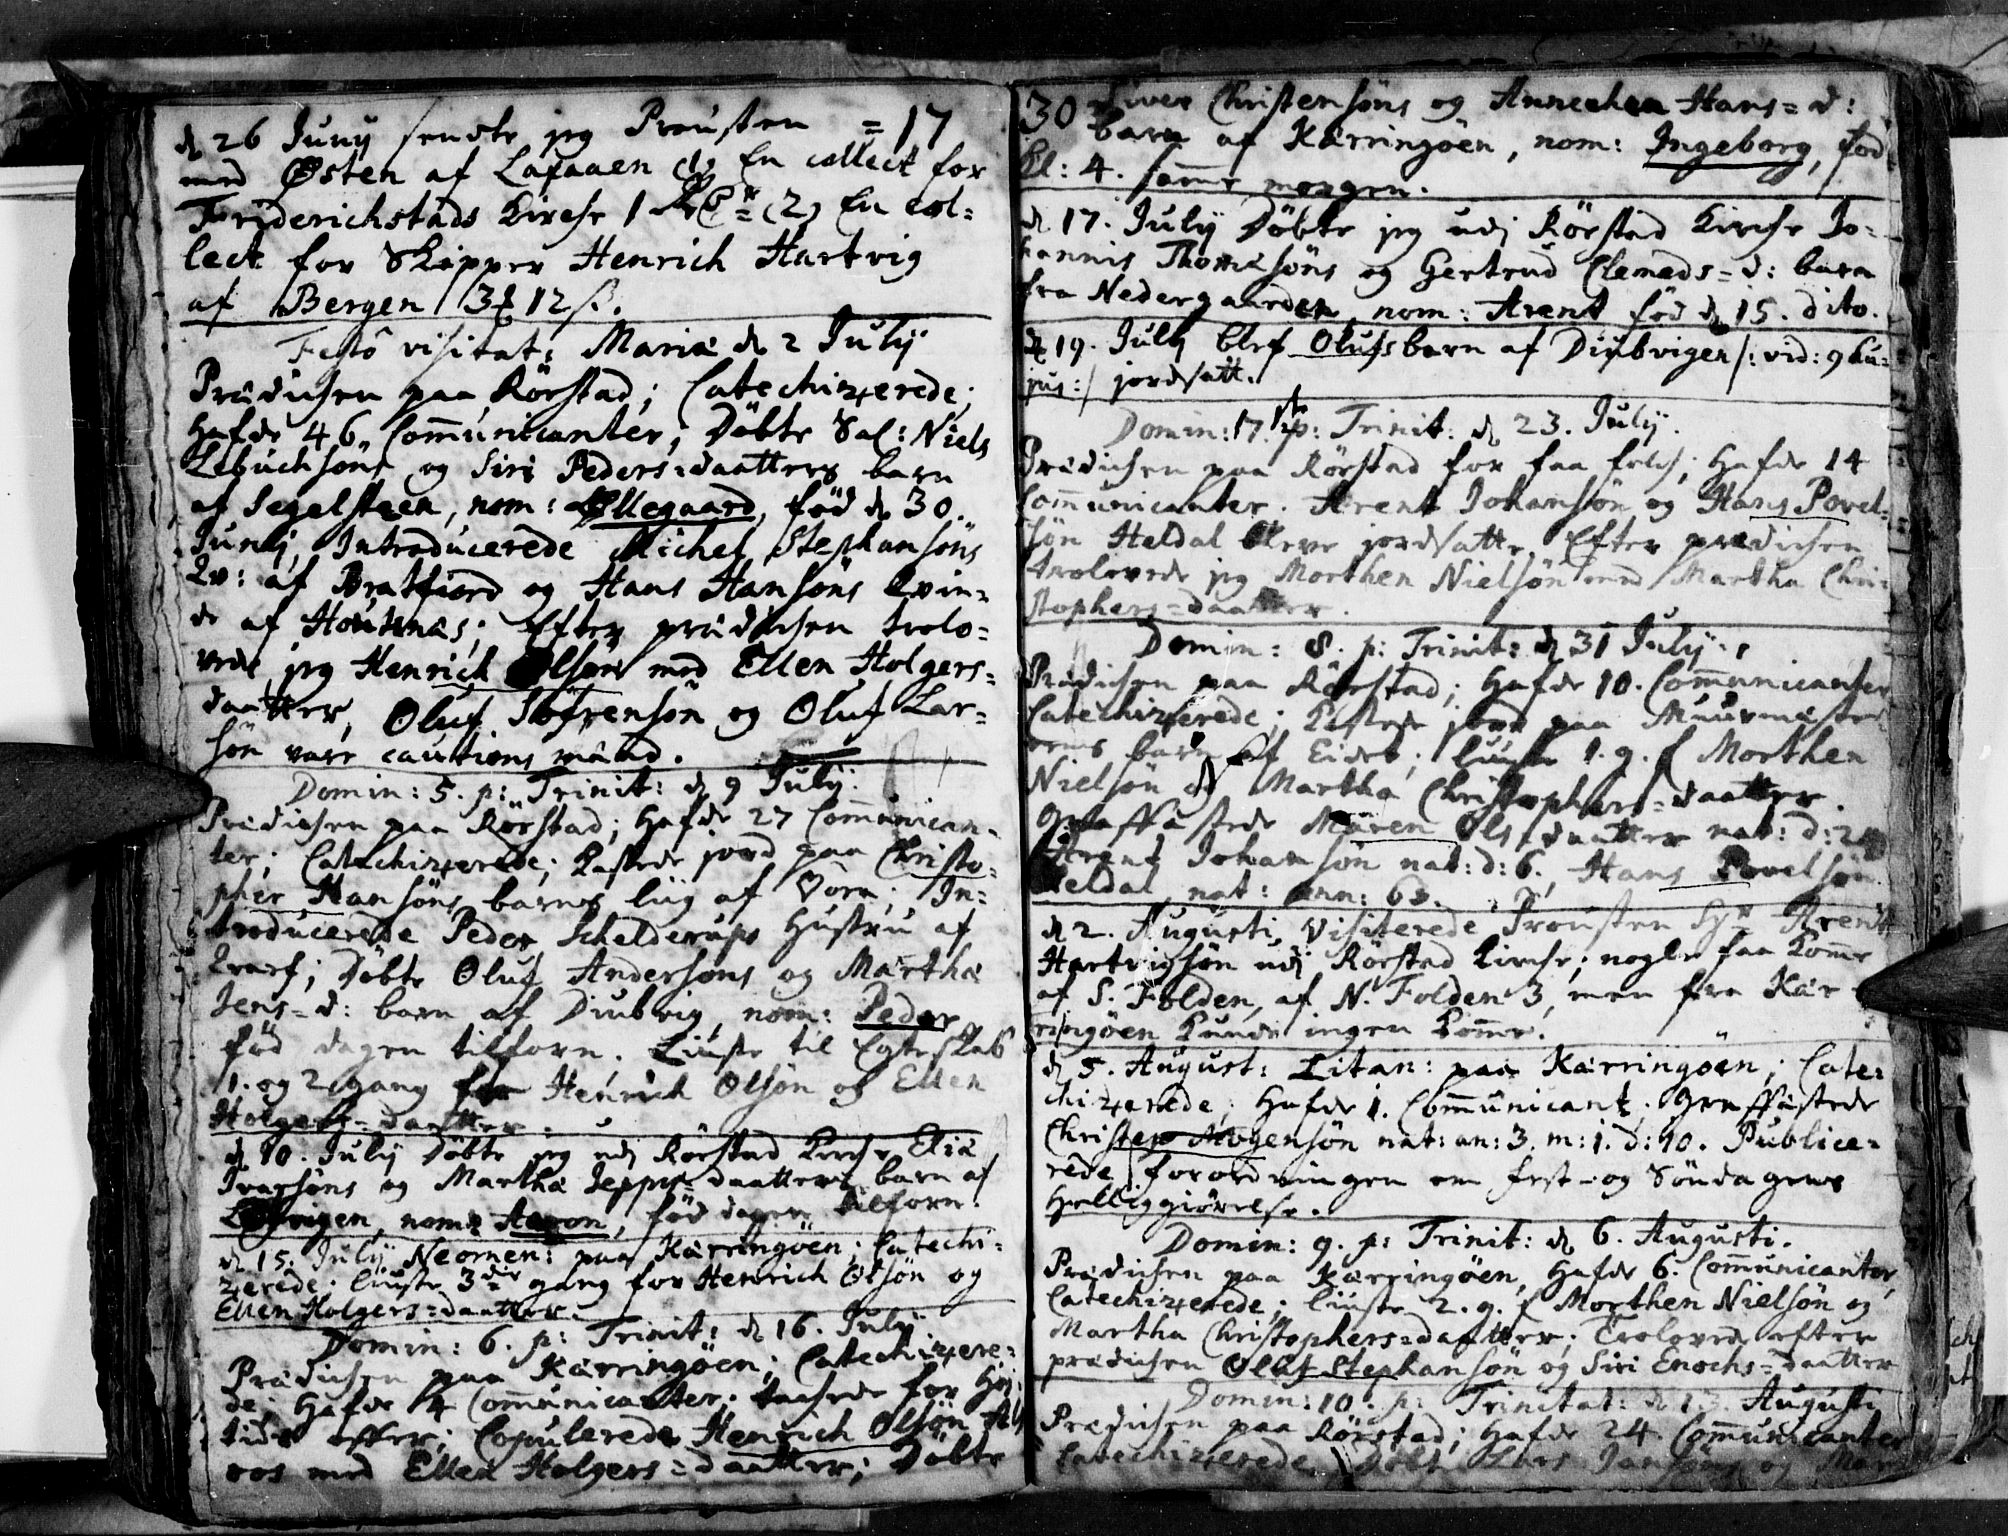 d 26 Junij sendte jeg Prousten = 17
med Østen af Lafaaen (1) En collect for
Friderichstads Kirche 1 (2) En col=
lect for Skipper Henrich Hartvig
af Bergen 3 12 ß.
Festo visitat: Mariæ d 2 July
Prædichen paa Rörstad; Catechizerede;
Hafde 46. Com̄unicanter; Döbte Sal: Niels
Lebuchsöns og Siri Peders=daatters barn
af Segelsteen, nom: Ellegaard, föd d 30.
Junij, Introducerede Michel Stephansöns
Qv: af Bratfiord og Hans Hansöns Qvin=
de af Hournæs; Efter prædichen trolo=
vede jeg Henrich Olsön med Ellen Holgers=
daatter, Oluf Söfrensön og Oluf Lar=
sön vare cautions mænd.
Domin: 5. p: Trinit: d 9 July:
Prædichen paa Rörstad; Hafde 27 Com̄unican=
ter; Catechizerede; Kastede jord paa Christo=
pher Hansöns barns liig af Vöra; In=
troducerede Peder Schelderups Hustru af
Qvarf; Döbte Oluf Andersöns og Martha
Jens=d: barn af Diubvig, nom: Peder
föd dagen tilforn. Liuste til Egteskab
1. og 2 gang for Henrich Olsön og Ellen
Holgers=daatter.
d 10. July Döbte jeg udj Rörstad Kirche Eliæ
Ivarsöns og Martha Jeppis daatters barn af
nom: Aaron, föd dagen tilforn.
d 15. July Neomen: paa Kærringöen; Catechi=
zerede; liuste 3die gang for Henrich Olsön og
Ellen Holgers=daatter.
Domin: 6. p: Trinit: d 16. July
Prædichen paa Kærringöen; Catechizere=
de; Hafde 4 Com̄unicanter; tachede for Høj
tids offer; Copulerede Henrich Olsön
med Ellen Holgers=daatter; Döbte
30 Siver Christensöns og Annechen Hans=d:
barn af Kærringöen, nom: Ingeborg, föd
Kl: 4. sam̄e morgen.
d 17. July Döbte jeg udj Rörstad Kirche Jo=
hannis Thomæsöns og Gertrud Clemeds=d: barn
fra Nedergaarden, nom: Arent föd d 15. dito.
d 19. July blef Olufs barn af Diubvigen /: vid: 9 hu=
jus:/ jordsatt.
Domin: 7. p: Trinit: d 23. July.
Prædichen paa Rörstad for faa folch; Hafde 14
Com̄unicanter. Arent Johansön og Hans Povel=
sön Heldal bleve jordsatte. Efter prædichen
trolovede jeg Morthen Nielsön med Martha Chri=
stophers=daatter.
Domin: 8. p: Trinit: d 31 July.
Prædichen paa Rörstad; Hafde 10. Com̄unicanter
Catechizerede; Kastede jord paa Muurmæster
ens barn af Eidet; liuste 1. g. f Morthen
Nielsön og Martha Christophers=daatter.
Graffæstede Maren Ols daatter nat: d: 24
Arent Johansön nat: d: 6., Hans Povelsön
Heldal nat: ann: 63.
d 2. Augusti, Visiterede Prousten Hr Arent
Hartvigsön udj Rörstad Kirche; nogle faa Kom̄e
af S. Folden, af N. Folden 3, men fra Kær=
ringöen Kunde ingen Kom̄e.
d 5. August: Litan: paa Kærringöen; Cate=
chizerede; Hafde 1. Com̄unicant; Graffæstede
Christen Mogensön nat: an: 3. m: 1. d: 10. Publice=
rede forordningen om fest- og Söndagens
Helliggiörelse.
Domin: 9. p: Trinit: d 6. Augusti.
Prædichen paa Kærringöen, Hafde 6. Com̄unicanter,
Catechizerede; liuste 2. g. f Morthen Nielsön og
Martha Christophers=daatter; Trolovede efter
prædichen Oluf Stephansön og Siri Enochs=daatter
Domin: 10. p: Trinitat: d 13. Augusti
Prædichen paa Rörstad; Hafde 24 Com̄unicanter
Catechizerede, Döbt Lars Jansöns og